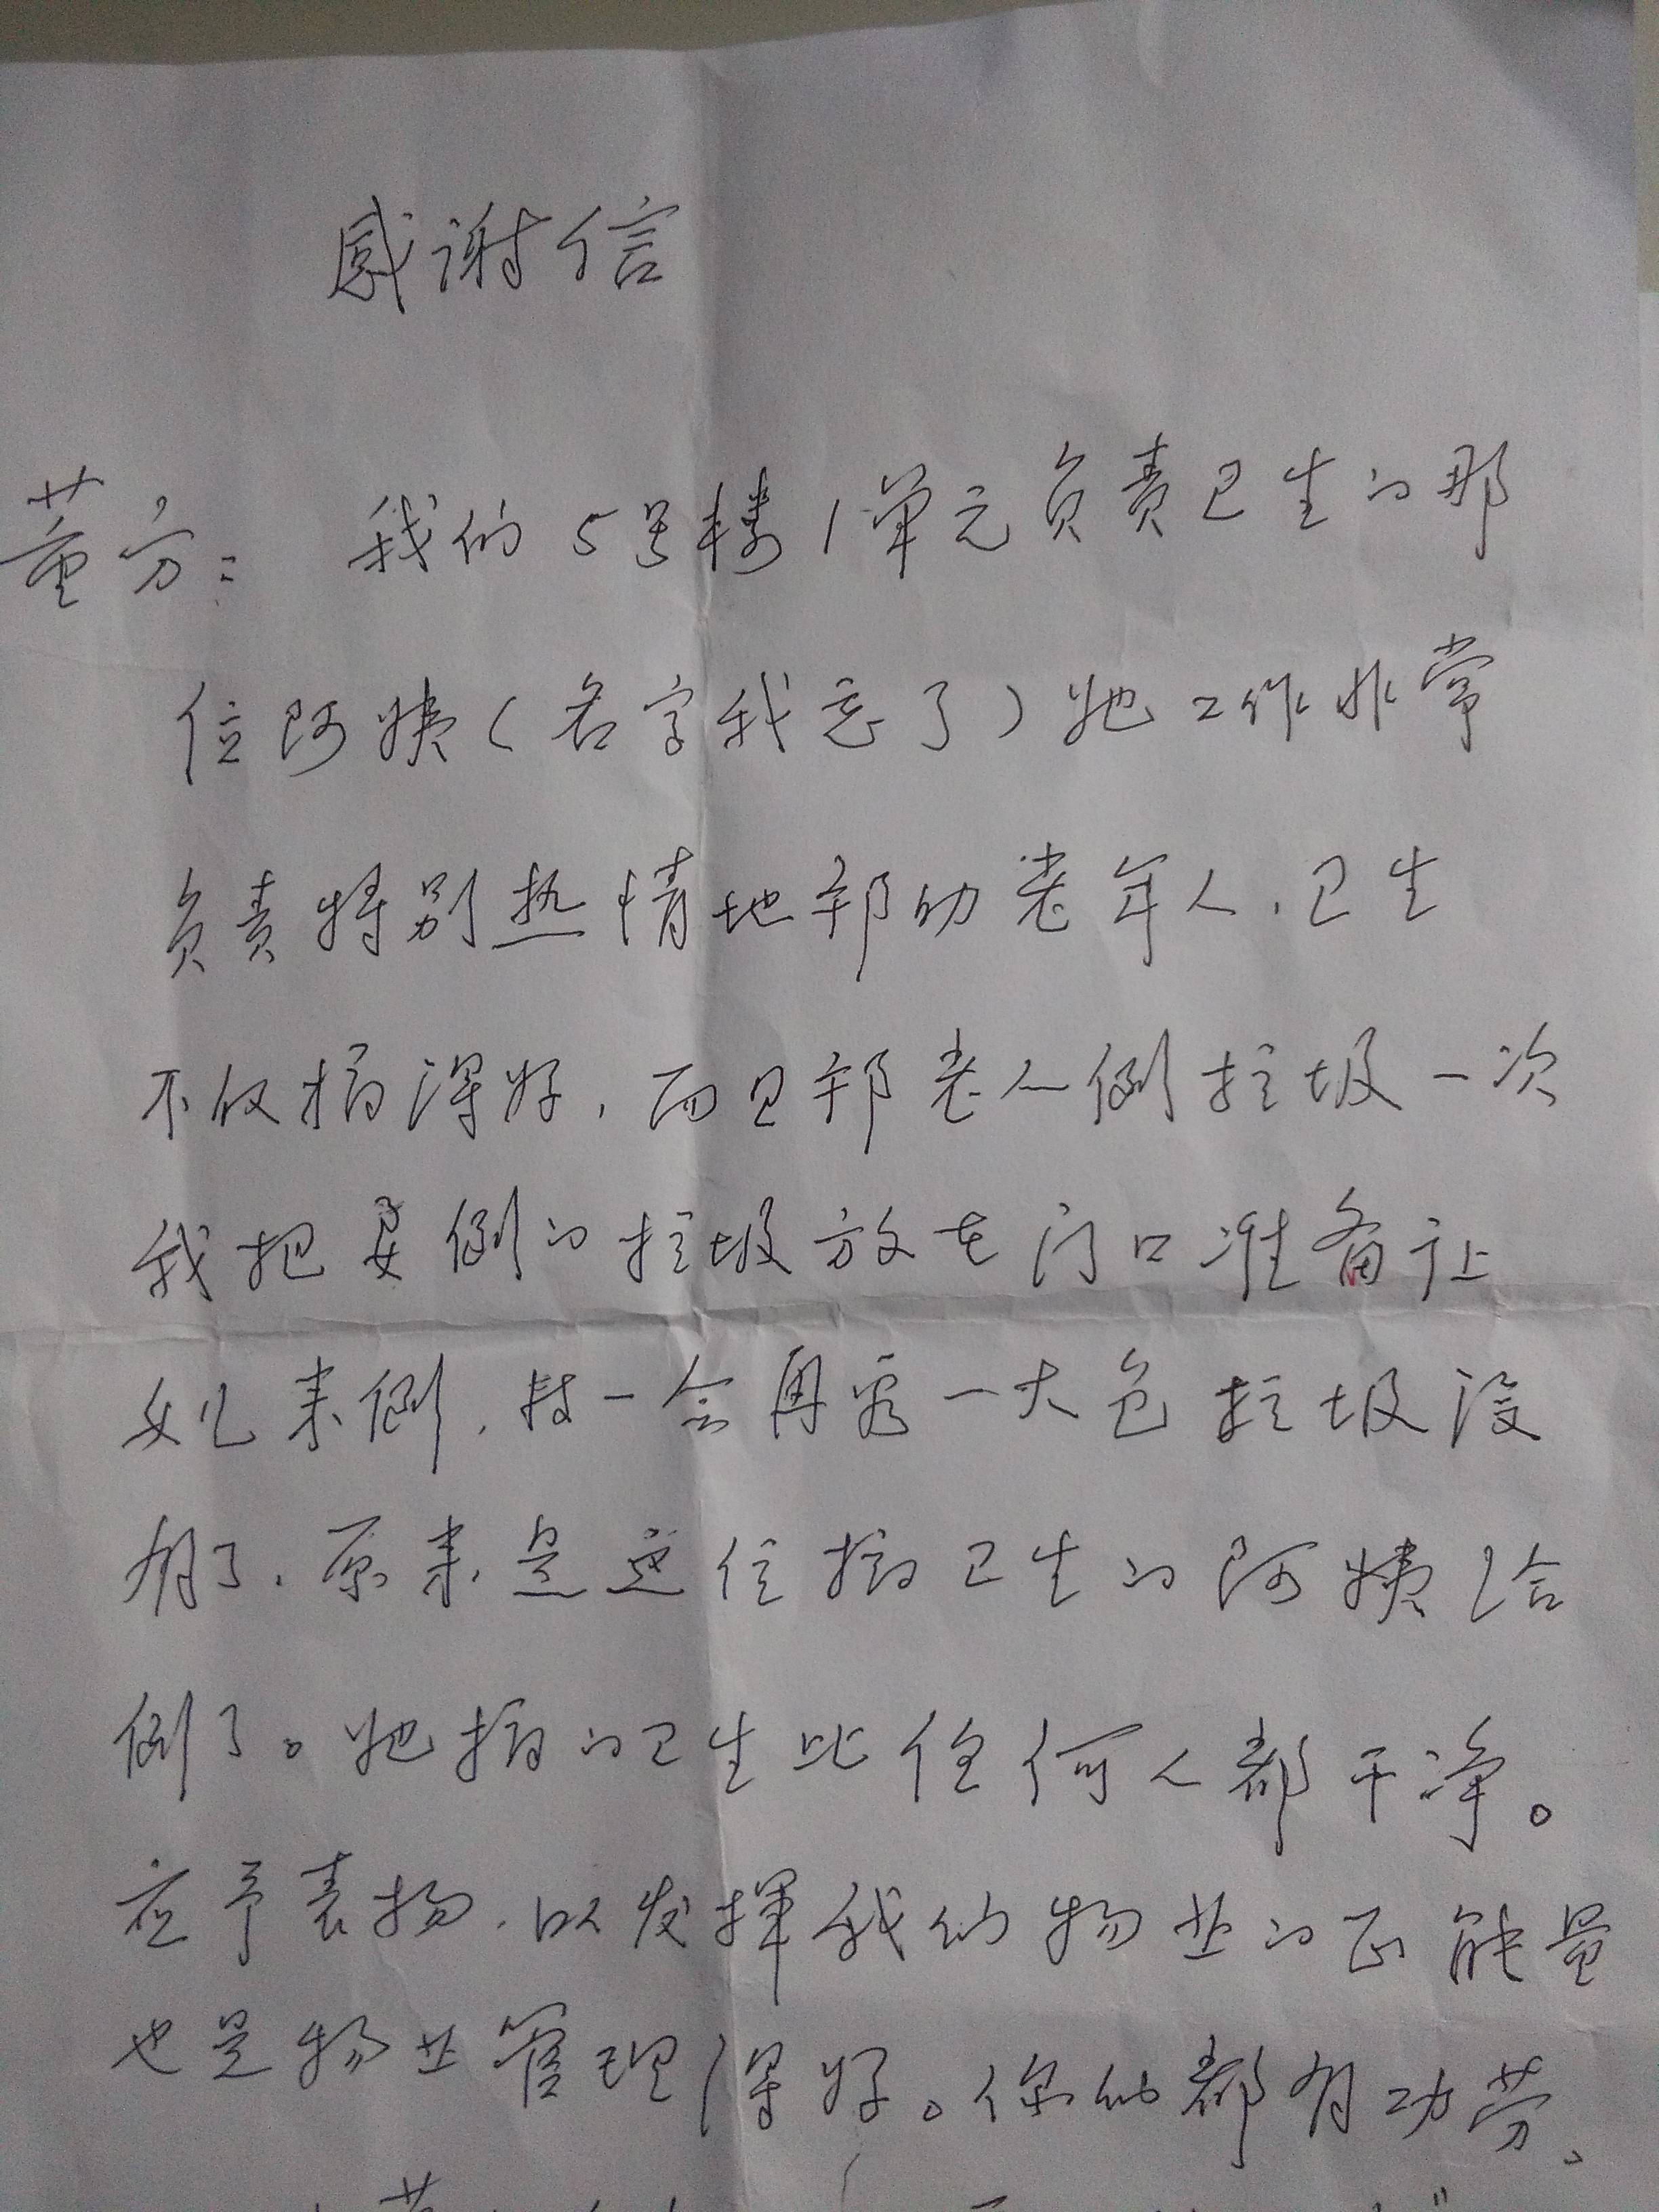 感谢信
董方：我们5号楼1单元负责卫生的那
位阿姨（名字我忘了）她工作非常
负责特别热情地帮助老年人，卫生
不仅搞得好，而且帮老人倒垃圾一次
我把要倒的垃圾放在门口准备让
女儿来倒，待一会再看一大包垃圾没
有了，原来是这位搞卫生的阿姨给
倒了。她搞的卫生比任何人都干净。
应予表扬，以发挥我们物业的正能量
也是物业管理得好。你们都有功劳、